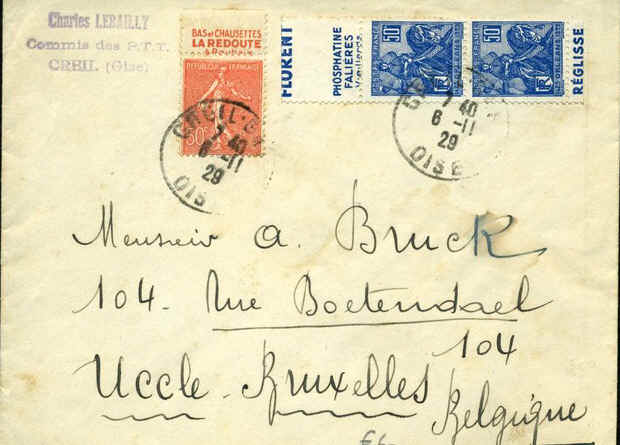 Charles LEBAILLY
Commis des P.T.T.
CREIL (Oise)
BAS ET CHAUSETTES
LA REDOUTE
à Roubaix
REPUBLIQUE FRANÇAISE
50c
FLORENT
PHOSPHATINE
FALIÈRES
50
50
RÉGLISSE
CREIL
7 40
6 -11
29
OISE
7 40
6 -11
29
OISE
Monsieur A. Bruck
104. Rue Boetendael
104
Uccle-Bruxelles
Belgique